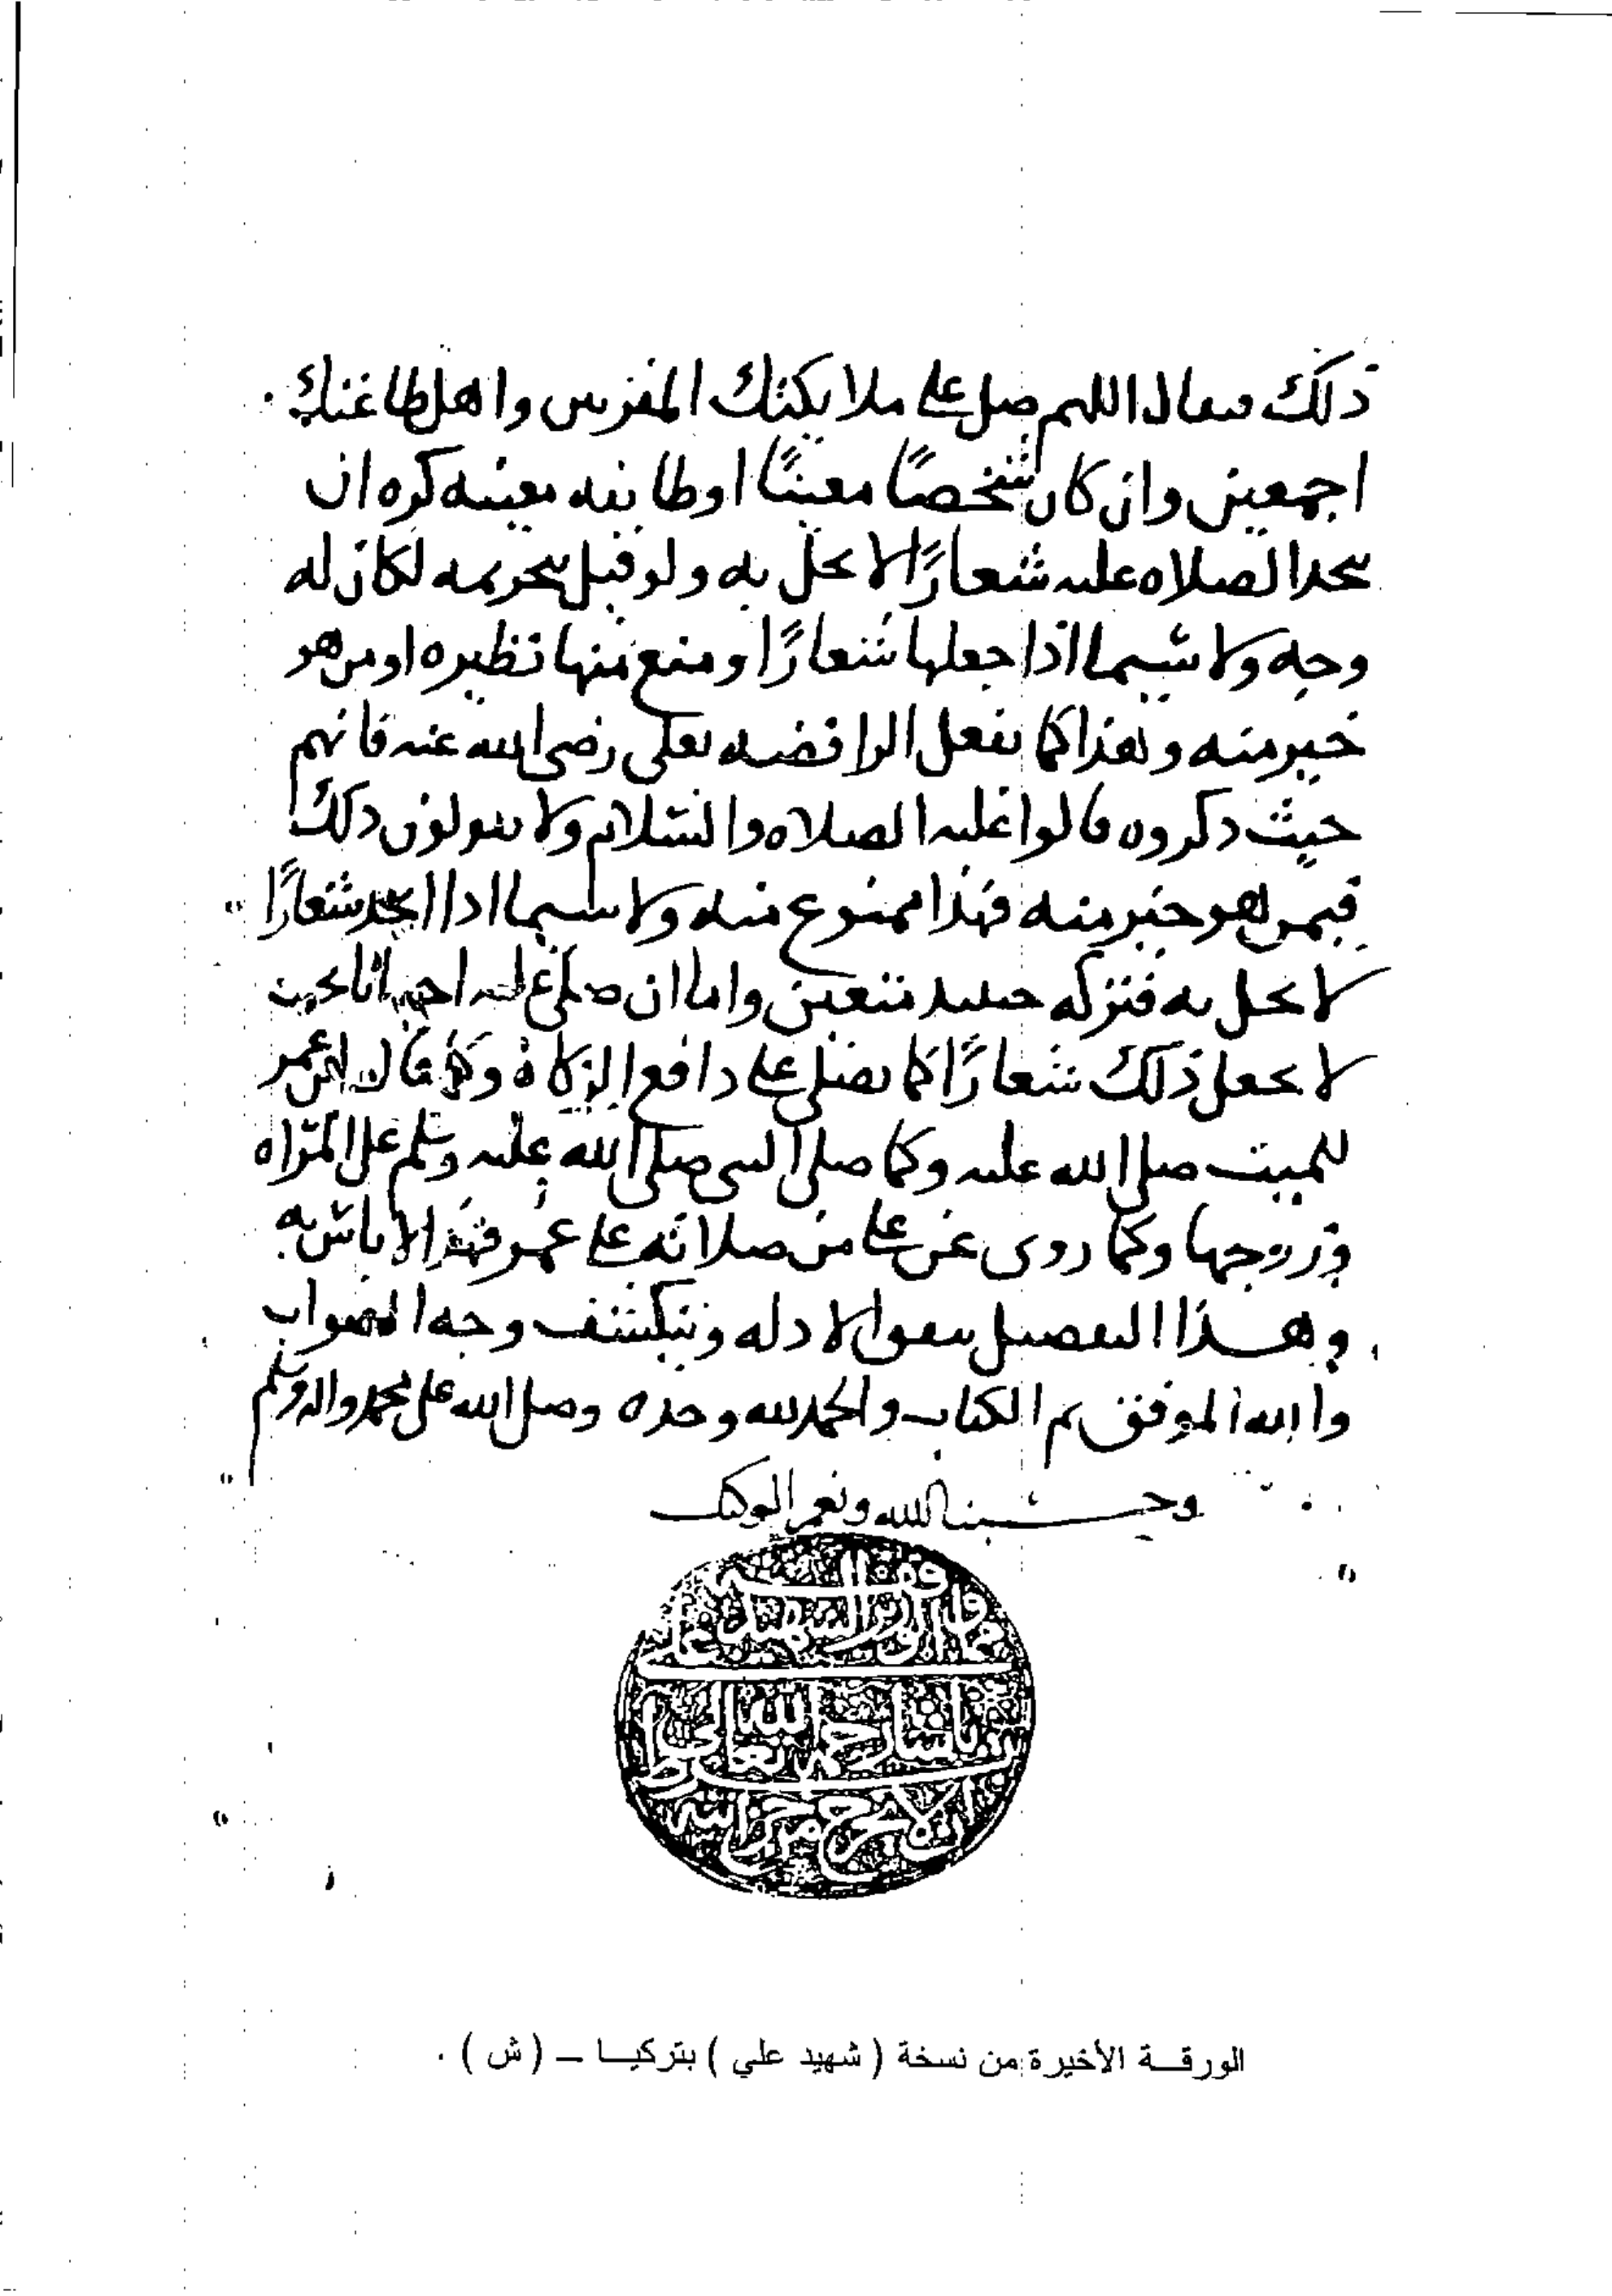 ذلك فيقال اللهم صل على ملايكتك المقربين واهل طاعتك
اجمعين وان كان شخصًا معينًا او طايفه معينه كره ان
يتخذ الصلاه عليه شعارًا لا يخل به ولو قيل بتحريمه لكان له
وجه ولا سيما اذا جعلها شعارًا ومنع منها نظيره او من هو
خير منه وهذا كما تفعل الرافضه بعلي رضي الله عنه فانهم
حيث ذكروه قالوا عليه الصلاه والسلام ولا يقولون ذلك
فيمن هو خير منه فهذا ممنوع منه ولا سيما اذا اتخذ شعارًا
لا يخل به فتركه حينيذ متعين واما ان صلي عليه احيانا بحيث
لا يجعل ذلك شعارًا كما يصلى على دافع الزكاة وكما قال ابن عمر
للميت صلى الله عليه وكما صلى النبي صلى الله عليه وسلم على المراه
وزوجها وكما روى عن علي من صلاته على عمر فهذا لا باس به
وهذا التفصيل تتفق الادله وينكشف وجه الصواب
والله الموفق تم الكتاب والحمد لله وحده وصلى الله على محمد واله وسلم
وحسبنا الله ونعم الوكيل
مما وقف الوزير الشهيد علي
باشا رحمه الله تعالى بشرط
ان لا يخرج من خزانته
الورقة الأخيرة من نسخة ( شهيد علي ) بتركيا – ( ش ) .